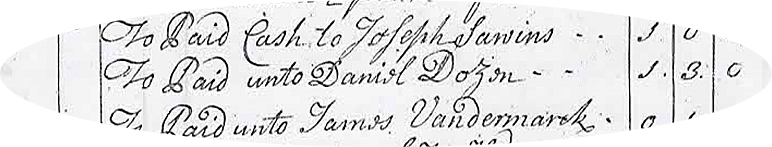 To Paid Cash to Joseph Sawins - - 1. 0
To Paid unto Daniel Dozen - - 1. 3. 0
To Paid unto James Vandermarck - 0